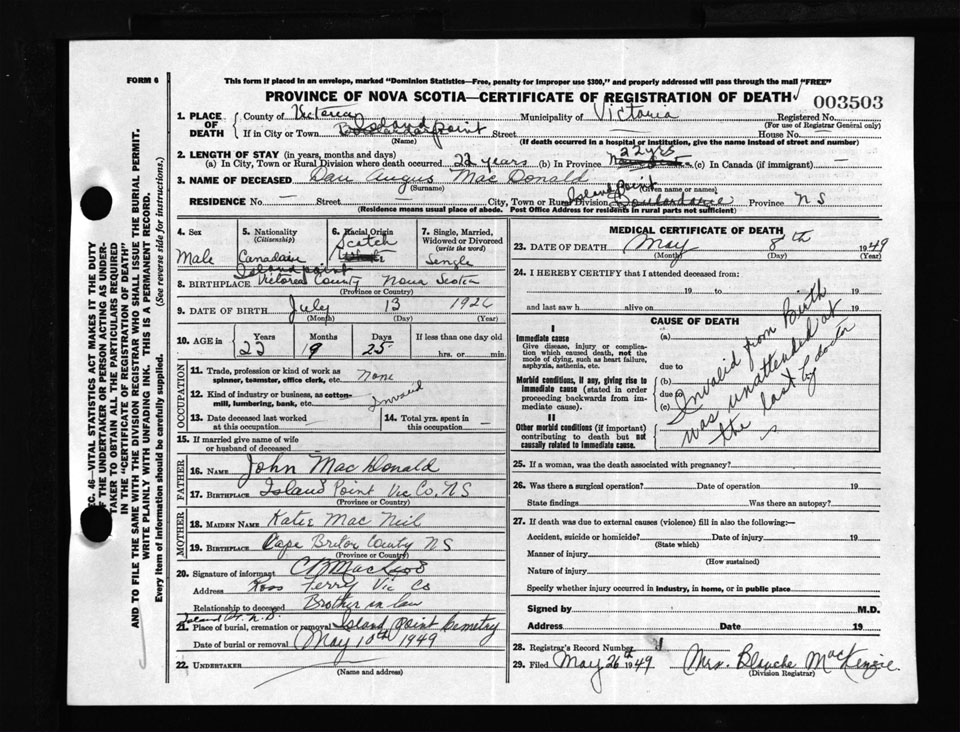 FORM 6
This form if placed in an envelope, marked "Dominion Statistics—Free, penalty for improper use $300," and properly addressed will pass through the mail "FREE"
PROVINCE OF NOVA SCOTIA—CERTIFICATE OF REGISTRATION OF DEATH
003503
1. PLACE OF DEATH
County of Victoria Municipality of Victoria Registered No.
(For use of Registrar General only)
If in City or Town Island point Street House No.
(Name) (If death occurred in a hospital or institution, give the name instead of street and number)
2. LENGTH OF STAY (in years, months and days)
22 yrs
(a) In City, Town or Rural Division where death occurred 22 years (b) In Province (c) In Canada (if immigrant) —
3. NAME OF DECEASED Dan Angus Mac Donald
(Surname) (Given name or names)
Island Point
RESIDENCE No. — Street — City, Town or Rural Division Boulardarie Province N S
(Residence means usual place of abode. Post Office Address for residents in rural parts not sufficient)
4. Sex
Male
5. Nationality
(Citizenship)
Canadain
6. Racial Origin
Scotch
7. Single, Married, Widowed or Divorced
(write the word)
Single
Island point
8. BIRTHPLACE Victoria County Nova Scotia
(Province or Country)
9. DATE OF BIRTH July 13 1926
(Month) (Day) (Year)
10. AGE in Years Months Days If less than one day old
22 9 25 hrs. or min.
OCCUPATION
11. Trade, profession or kind of work as
spinner, teamster, office clerk, etc. None
12. Kind of industry or business, as cotton-
mill, lumbering, bank, etc. Invalid
13. Date deceased last worked
at this occupation —
14. Total yrs. spent in
this occupation —
15. If married give name of wife
or husband of deceased
FATHER
16. NAME John Mac Donald
17. BIRTHPLACE Island Point Vic Co, NS
(Province or Country)
MOTHER
18. MAIDEN NAME Katie Mac Neil
19. BIRTHPLACE Cape Breton County NS
(Province or Country)
20. Signature of informant
Address Ross Ferry Vic Co
Relationship to deceased Brother in law
Island Pt. N.S.
21. Place of burial, cremation or removal Island Point Cemetry
Date of burial or removal May 10th 1949
22. UNDERTAKER
(Name and address)
MEDICAL CERTIFICATE OF DEATH
23. DATE OF DEATH May 8th 1949
(Month) (Day) (Year)
24. I HEREBY CERTIFY that I attended deceased from:
19 to 19
and last saw h alive on 19
CAUSE OF DEATH
I
Immediate cause (a)
Give disease, injury or complica-
tion which caused death, not the
mode of dying, such as heart failure,
asphyxia, asthenia, etc.
due to
Morbid conditions, if any, giving rise to
immediate cause (stated in order
proceeding backwards from im-
mediate cause).
(b)
due to
(c)
II
Other morbid conditions (if important)
contributing to death but not
causally related to immediate cause.
Invalid from Birth
was unattended at
the last by doctor
25. If a woman, was the death associated with pregnancy?
26. Was there a surgical operation? Date of operation 19
State findings Was there an autopsy?
27. If death was due to external causes (violence) fill in also the following:—
Accident, suicide or homicide? Date of injury 19
(State which)
Manner of injury
(How sustained)
Nature of injury
Specify whether injury occurred in industry, in home, or in public place
Signed by M.D.
Address Date 19
28. Registrar's Record Number 1
29. Filed May 26th 1949 Mrs. Blanche MacKenzie
(Division Registrar)
EC. 46—VITAL STATISTICS ACT MAKES IT THE DUTY
OF THE UNDERTAKER OR PERSON ACTING AS UNDER-
TAKER TO OBTAIN ALL THE PARTICULARS REQUIRED
IN THE "CERTIFICATE OF REGISTRATION OF DEATH"
AND TO FILE THE SAME WITH THE DIVISION REGISTRAR WHO SHALL ISSUE THE BURIAL PERMIT.
WRITE PLAINLY WITH UNFADING INK. THIS IS A PERMANENT RECORD.
Every item of information should be carefully supplied. (See reverse side for instructions.)